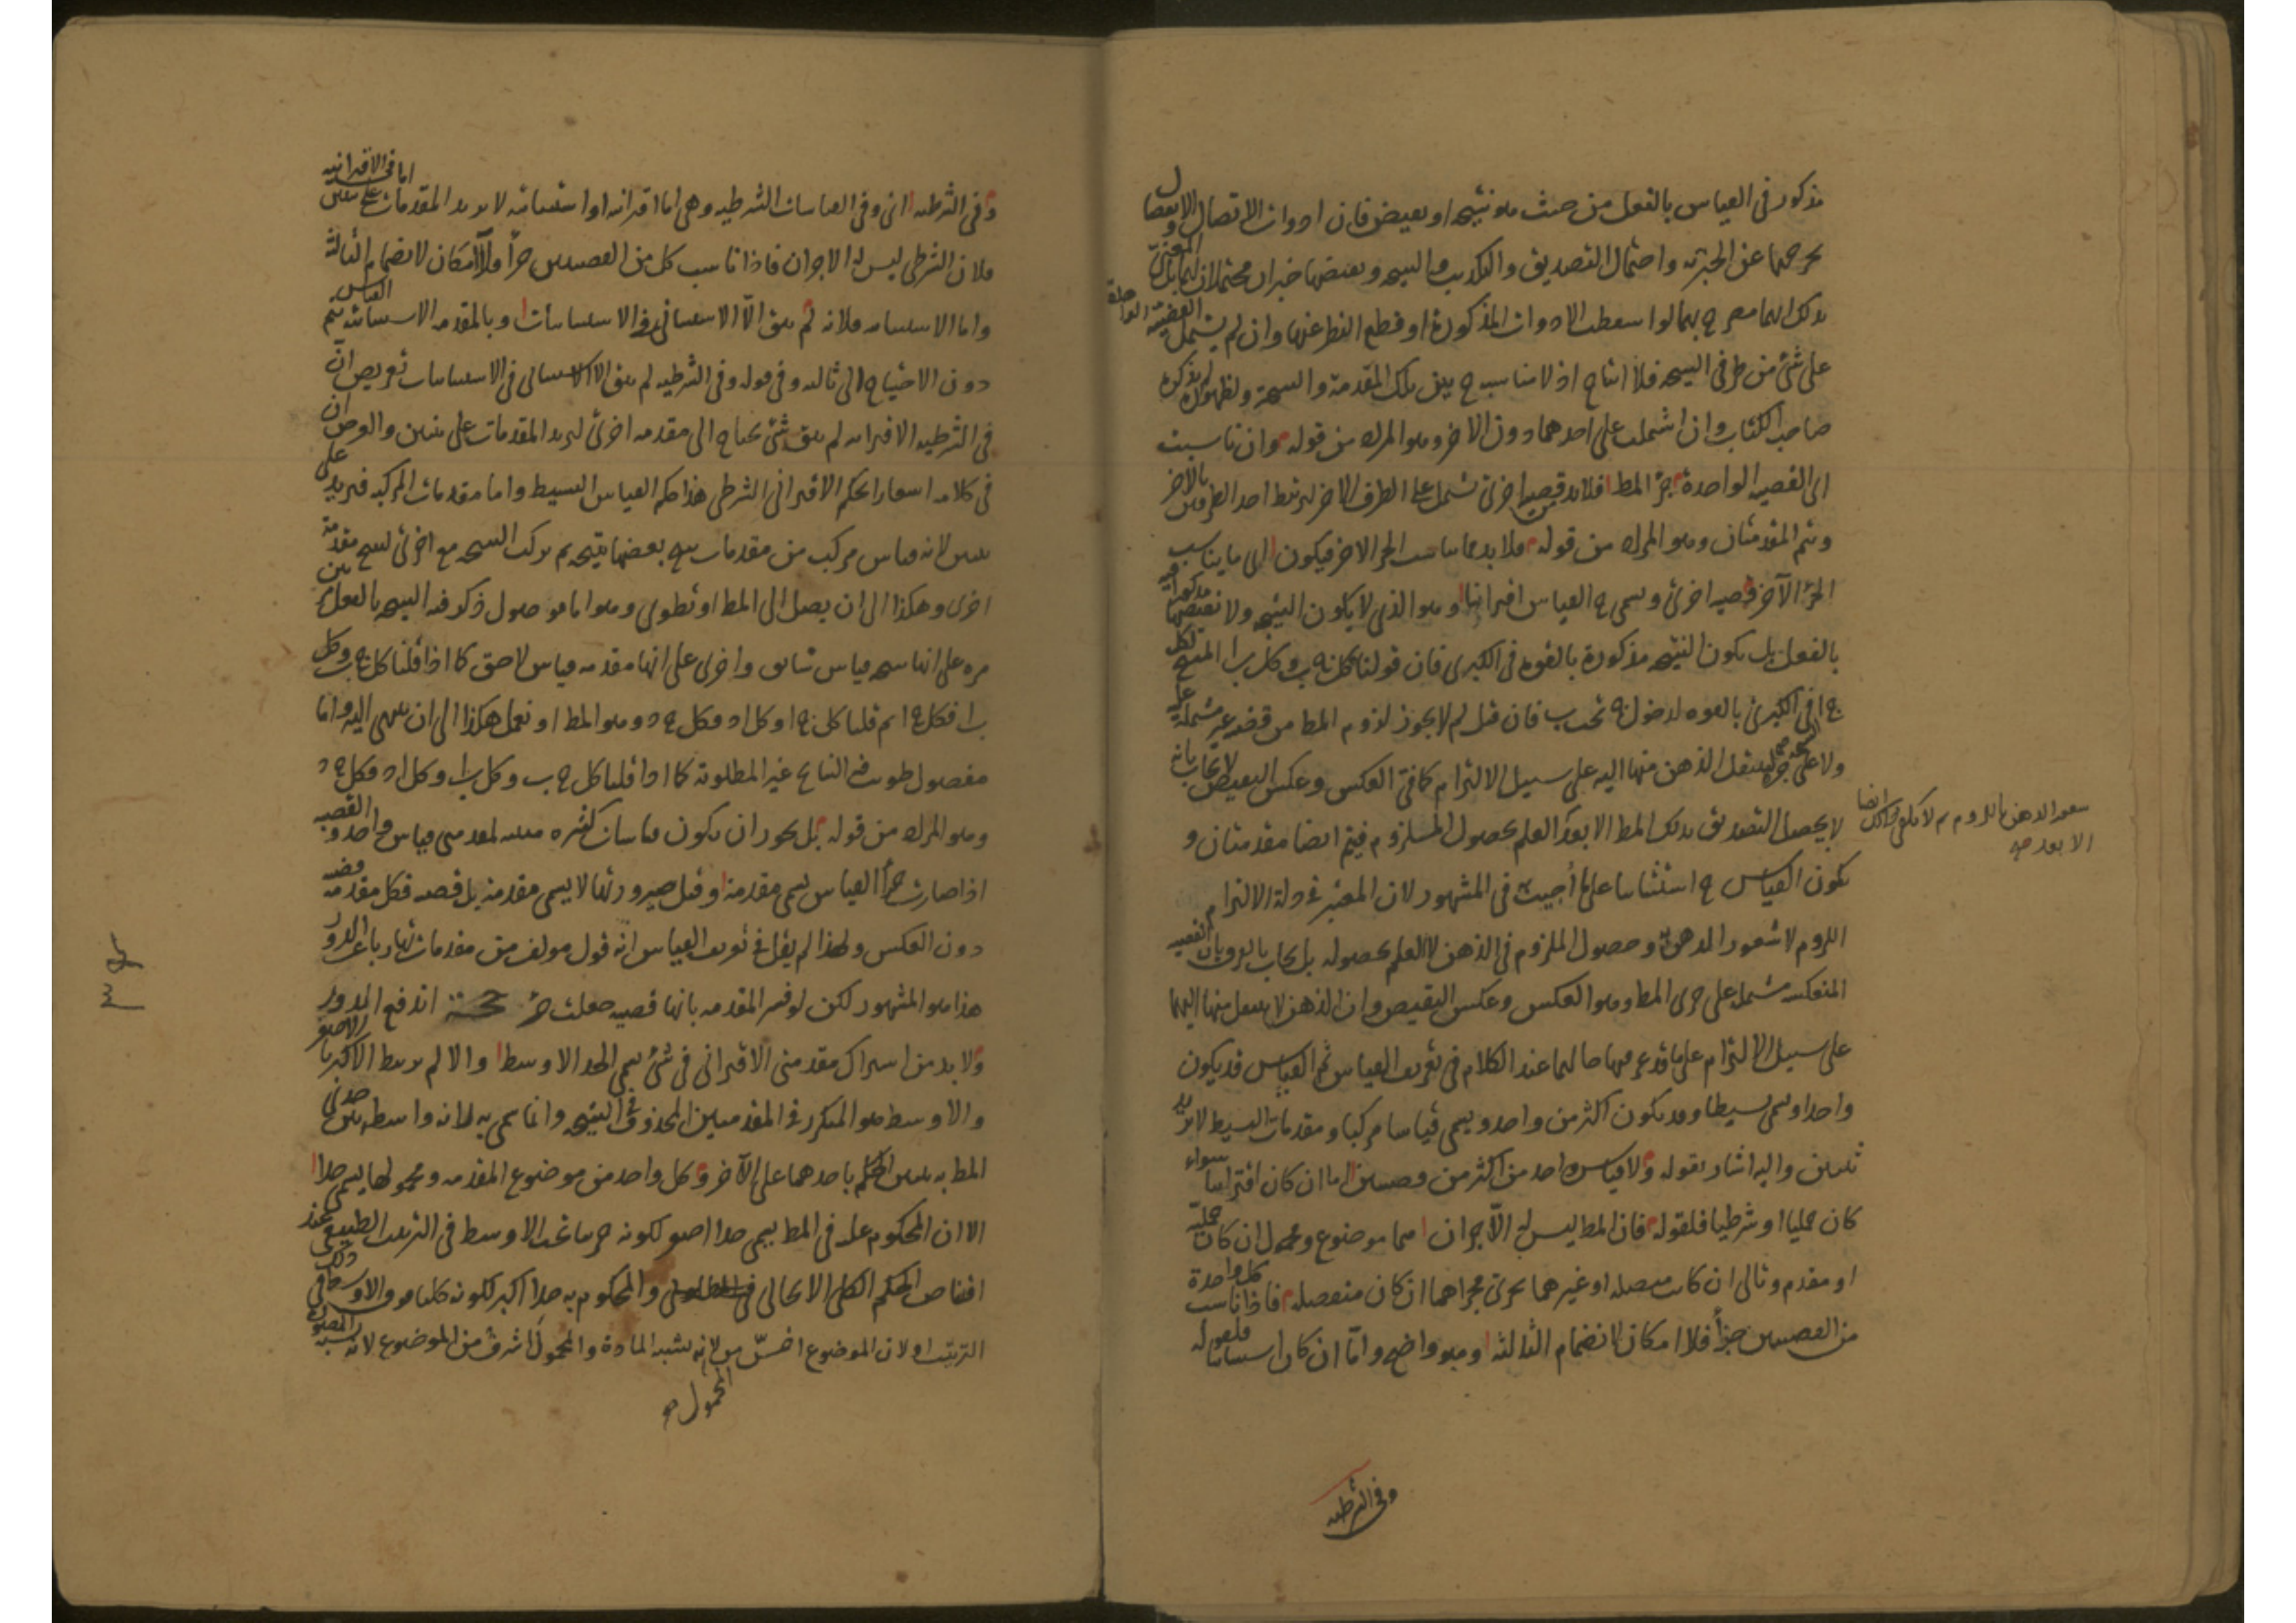 مذكور فى القياس بالفعل من حيث هو نتيجة او نقيض فان ادوات الاتصال والانفصال
تخرجهما عن الخبرية واحتمال التصديق والتكذيب والنتيجة ونقيضها خبران محتملان لهما بل المعنى
بذلك انهما مصرح بهما لو اسقطت الادوات المذكورة او قطع النظر عنها وان لم يشتمل القضية الواحدة
على شئ من طرفى النتيجة فلا انتاج اذ لا مناسبة ح بين تلك المقدمة والنتيجة ولظهوره لم يذكره
صاحب الكتاب وان اشتملت على احدهما دون الاخر وهو المراد من قوله وان ناسبت
الى القضية الواحدة جزء المط فلا بد من قضية اخرى تشتمل على الطرف الاخر ليرتبط احد الطرفين بالاخر
ويتم المقدمتان وهو المراد من قوله فلا بد مما يناسب الجزء الاخر فيكون الى ما يناسب
الجزء الآخر قضية اخرى ويسمى ح القياس اقترانيا وهو الذى لا يكون النتيجة ولا نقيضها مذكورا فيه
بالفعل بل يكون النتيجة مذكورة بالقوة فى الكبرى فان قولنا كل ج ب وكل ب ا المنتج لكل
ج ا فى الكبرى بالقوة لدخول ج تحت ب فان قيل لم لا يجوز لزوم المط من قضية غير مشتملة عليه
ولا على جزئه لينتقل الذهن منها اليه على سبيل الالتزام كما فى العكس وعكس النقيض لا يجاب بانه
لا يحصل التصديق بذلك المط الا بعد العلم بحصول المستلزم فيتم ايضا مقدمتان و
يكون القياس ح استثنائيا على ما أجيب فى المشهور لان المعتبر فى دلالة الالتزام
اللزوم لا شعور الذهن وحصول الملزوم فى الذهن لا العلم بحصوله بل يجاب بالفرق بان القضية
المنعكسة مشتملة على جزئى المط وهو العكس وعكس النقيض وان الذهن لا ينتقل منها اليهما
على سبيل الالتزام على ما قد عرفتها حالهما عند الكلام فى تعريف القياس ثم القياس قد يكون
واحدا ويسمى بسيطا وقد يكون اكثر من واحد ويسمى قياسا مركبا ومقدمات البسيط لا تزيد
ثنتين واليه اشار بقوله ولا قياس واحد من اكثر من قضيتين اما ان كان اقترانيا سواء
كان حمليا او شرطيا فلقوله فان المط ليس له الا جزءان هما موضوع ومحمول ان كان حملية
او مقدم وتالى ان كانت متصلة او غيرهما يجرى مجراهما ان كان منفصلة فاذا ناسبت كل واحدة
من القضيتين جزأ فلا امكان لانضمام الثالثة وهو واضح واما ان كان استثنائيا فلقوله
شعور الذهن باللزوم ثم لا يكفى ذلك ايضا
الا بعد
وفى الشرطية
وفى الشرطية اى وفى القياسات الشرطية وهى اما اقترانية او استثنائية لا يزيد المقدمات على ثنتين اما فى الاقترانية
فلان الشرطى ليس له الا جزءان فاذا ناسب كل من القضيتين جزأ فلا امكان لانضمام الثالثة
واما الاستثنائية فلانه لم يبق الا الاستثنائى فى الاستثنائيات وبالمقدمة الاستثنائية يتم القياس
دون الاحتياج الى ثالثة وفى قوله وفى الشرطية لم يبق الا الاستثنائى فى الاستثنائيات تعريض ان
فى الشرطية الاقترانية لم يبق شئ يحتاج الى مقدمة اخرى ليزيد المقدمات على ثنتين والغرض ان
فى كلامه اشعارا بحكم الاقترانى الشرطى هذا حكم القياس البسيط واما مقدمات المركب فيزيد على
ثنتين لانه قياس مركب من مقدمات ينتج بعضها نتيجة ثم تركب النتيجة مع اخرى لينتج مقدمة
اخرى وهكذا الى ان يصل الى المط او تطوى وهو اما موصول ذكر فيه النتيجة بالفعل مرتين
مرة على انها نتيجة قياس سابق واخرى على انها مقدمة قياس لاحق كما اذا قلنا كل ج ب وكل
ب ا فكل ج ا ثم قلنا كل ج ا وكل ا د فكل ج د وهو المط او نعمل هكذا الى ان ينتهى اليه واما
مفصول طويت فيه النتائج غير المطلوبة كما اذا قلنا كل ج ب وكل ب ا وكل ا د فكل ج د
وهو المراد من قوله بل يجوز ان يكون قياسات كثيرة مبينة لمقدمتى قياس واحد والقضية
اذا صارت جزأ القياس يسمى مقدمة وقبل صيرورتها لا يسمى مقدمة بل قضية فكل مقدمة قضية
دون العكس ولهذا لم يقل فى تعريف القياس انه قول مؤلف من مقدمات تباعدا عن الدور
هذا هو المشهور لكن لو فسر المقدمة بانها قضية جعلت جزء حجة اندفع الدور
ولا بد من اشتراك مقدمتى الاقترانى فى شئ يسمى الحد الاوسط والا لم يرتبط الاكبر بالاصغر
والاوسط هو المتكرر فى المقدمتين المحذوف فى النتيجة وانما سمى به لانه واسطة بين حدى
المط به يتبين الحكم باحدهما على الآخر وكل واحد من موضوع المقدمة ومحمولها يسمى حدا
الا ان المحكوم عليه فى المط يسمى حدا اصغر لكونه جزئيا تحت الاوسط فى الترتيب الطبيعى عند
اقتناص الحكم الكلى الايجابى والمحكوم به حدا اكبر لكونه كليا فوق الاوسط فى ذلك
الترتيب او لان الموضوع اخس من المحمول لانه يشبه المادة والمحمول اشرف من الموضوع لانه يشبه الصورة